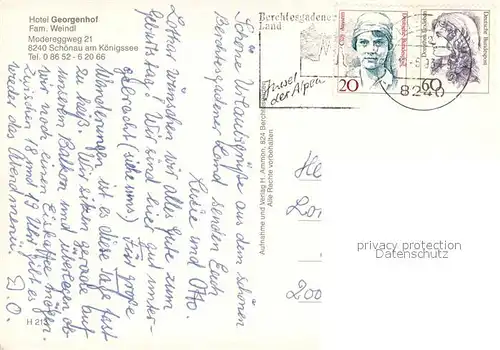 Hotel Georgenhof
Fam. Weindl
Modereggweg 21
8240 Schönau am Königssee
Tel. 0 86 52 - 6 20 66
Schöne Urlaubsgrüße aus dem schönen
Berchtesgadener Land senden Euch
Luise und Otto.
Lothar wünschen wir alles Gute zum
Geburtstag. Wir sind hier gut unter-
gebracht (siehe ums). Für große
Wanderungen ist es diese Tage fast
zu heiß. Wir sitzen gerade auf
unserem Balkon und überlegen, ob
wir noch einen Eiskaffee mögen.
Zwischen 18 und 19 Uhr gibt es
wieder das Abendmenü. D.O.
H 21
Aufnahme und Verlag H. Ammon, 824 Berchtesgaden
Alle Rechte vorbehalten
Berchtesgadener
Land
Insel
der Alpen
Cilly Aussem
Deutsche Bundespost
20
Deutsche Bundespost
60
8240
He
Lo
200
privacy protection
Datenschutz